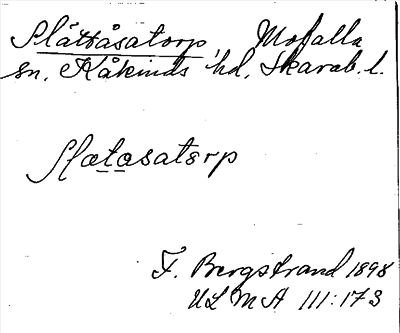 Slättåsatorp Mofalla
sn. Kåkinds hd, Skarab. l.
Slatasatorp
F. Bergstrand 1898
ULMA 111:173